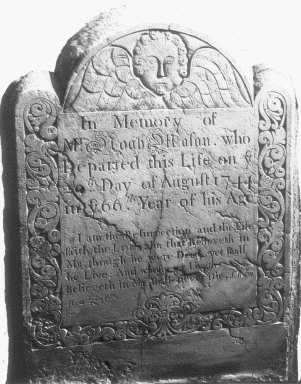 In Memory of
Mr. Noah Mason, who
Departed this Life on ye
Day of August 1744
in ye 66th Year of his Age
I am the Resurrection, and the Life
saith the Lord, also that Believeth in
Me, though he were Dead, yet shall
he Live: And whosoever Liveth
Believeth in Me shall never Die,